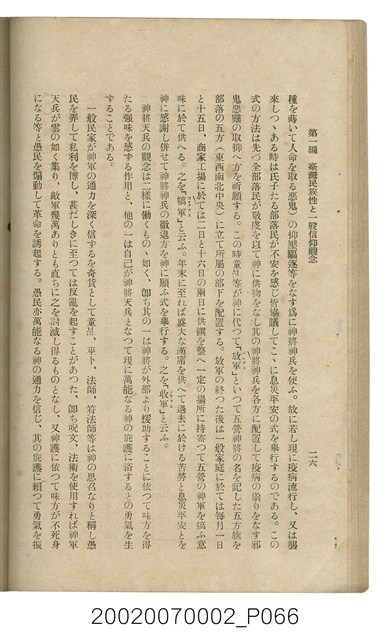 第一編　臺灣民族性と一般信仰觀念　　　二六
種を蒔いて人命を取る惡鬼）の抑壓驅逐等をなす爲に神將神兵を使ふ。故に若し現に疫病流行し、又は襲
來しつゝある時は氏子たる部落民が不安を感じ皆協議してこゝに息災平安の式を擧行するのである。この
式の方法は先づ全部落民が敬虔を以て神に供物をなし其の神將神兵を各方に配置して疫病の祟りをなす邪
鬼惡靈の取抑へ方を祈願する。この時童乩等が神に代つて「放軍」といつて五營神將の名を記した五方旗を
部落の五方（東西南北中央）に立て所屬の部下を配置する。放軍の終つた後は一般家庭に於ては每月一日
と十五日、商家工場に於ては二日と十六日の兩日に供饌を整へ一定の場所に持寄つて五營の神軍を犒ふ意
味に於て供へる。之を「犒軍」と云ふ。年末に至れば盛大な酒席を供へて過去に於ける苦勞と息災平安とを
神に感謝し併せて神將神兵の徹退方を神に願ふ式を擧行する。之を「收軍」と云ふ。
神將天兵の觀念は二樣に働くもの丶如く、卽ち其の一は神將が外部より援助することに依つて味方を得
たる强味を感ずる作用と、他の一は自己が神將天兵となつて現に萬能なる神の庇護に浴するとの勇氣を生
ずることである。
一般民家が神軍の通力を深く信ずるを奇貨として童乩、巫卜、法師、符法師等は神の思召なりと稱し愚
民を弄して私利を博し、甚だしきに至つては反亂を起すことがあつた。卽ち呪文、法術を使用すれば神軍
天兵が雲の如く集り、敵軍幾萬ありとも直ちに之を討滅し得るものとなし、又神護に依つて味方が不死身
になる等と愚民を煽動して革命を誘起する。愚民亦萬能なる神の通力を信じ、其の庇護に賴つて勇氣を振
20020070002_P066